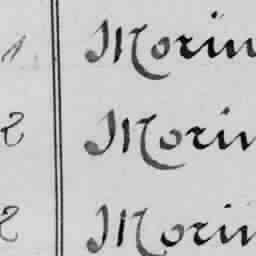 1 Morin
2 Morin
2 Morin